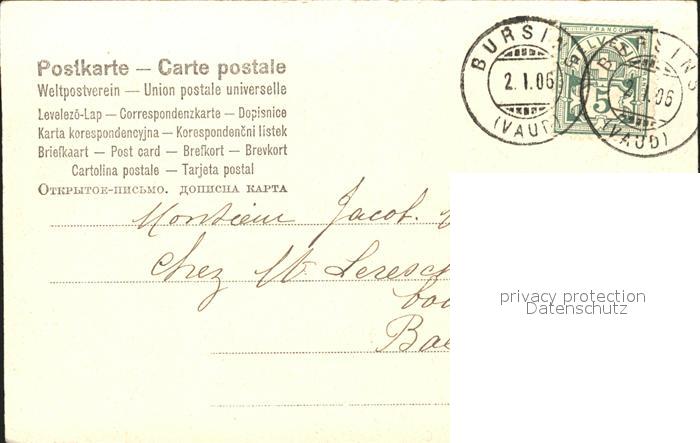 Postkarte — Carte postale
Weltpostverein — Union postale universelle
Levelező-Lap — Correspondenzkarte — Dopisnice
Karta korespondencyjna — Korespondenční listek
Briefkaart — Post card — Brefkort — Brevkort
Cartolina postale — Tarjeta postal
Открытое-письмо. дописна карта
BURSINS
2.I.06
(VAUD)
FRANCO
HELVETIA
5
BURSINS
2.I.06
(VAUD)
Monsieur Jacot.
Chez M. Leresch
privacy protection
Datenschutz